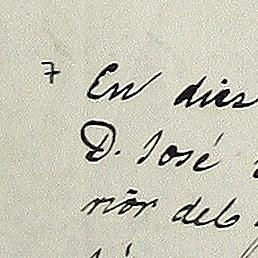 7 En dies
D. José
riór del